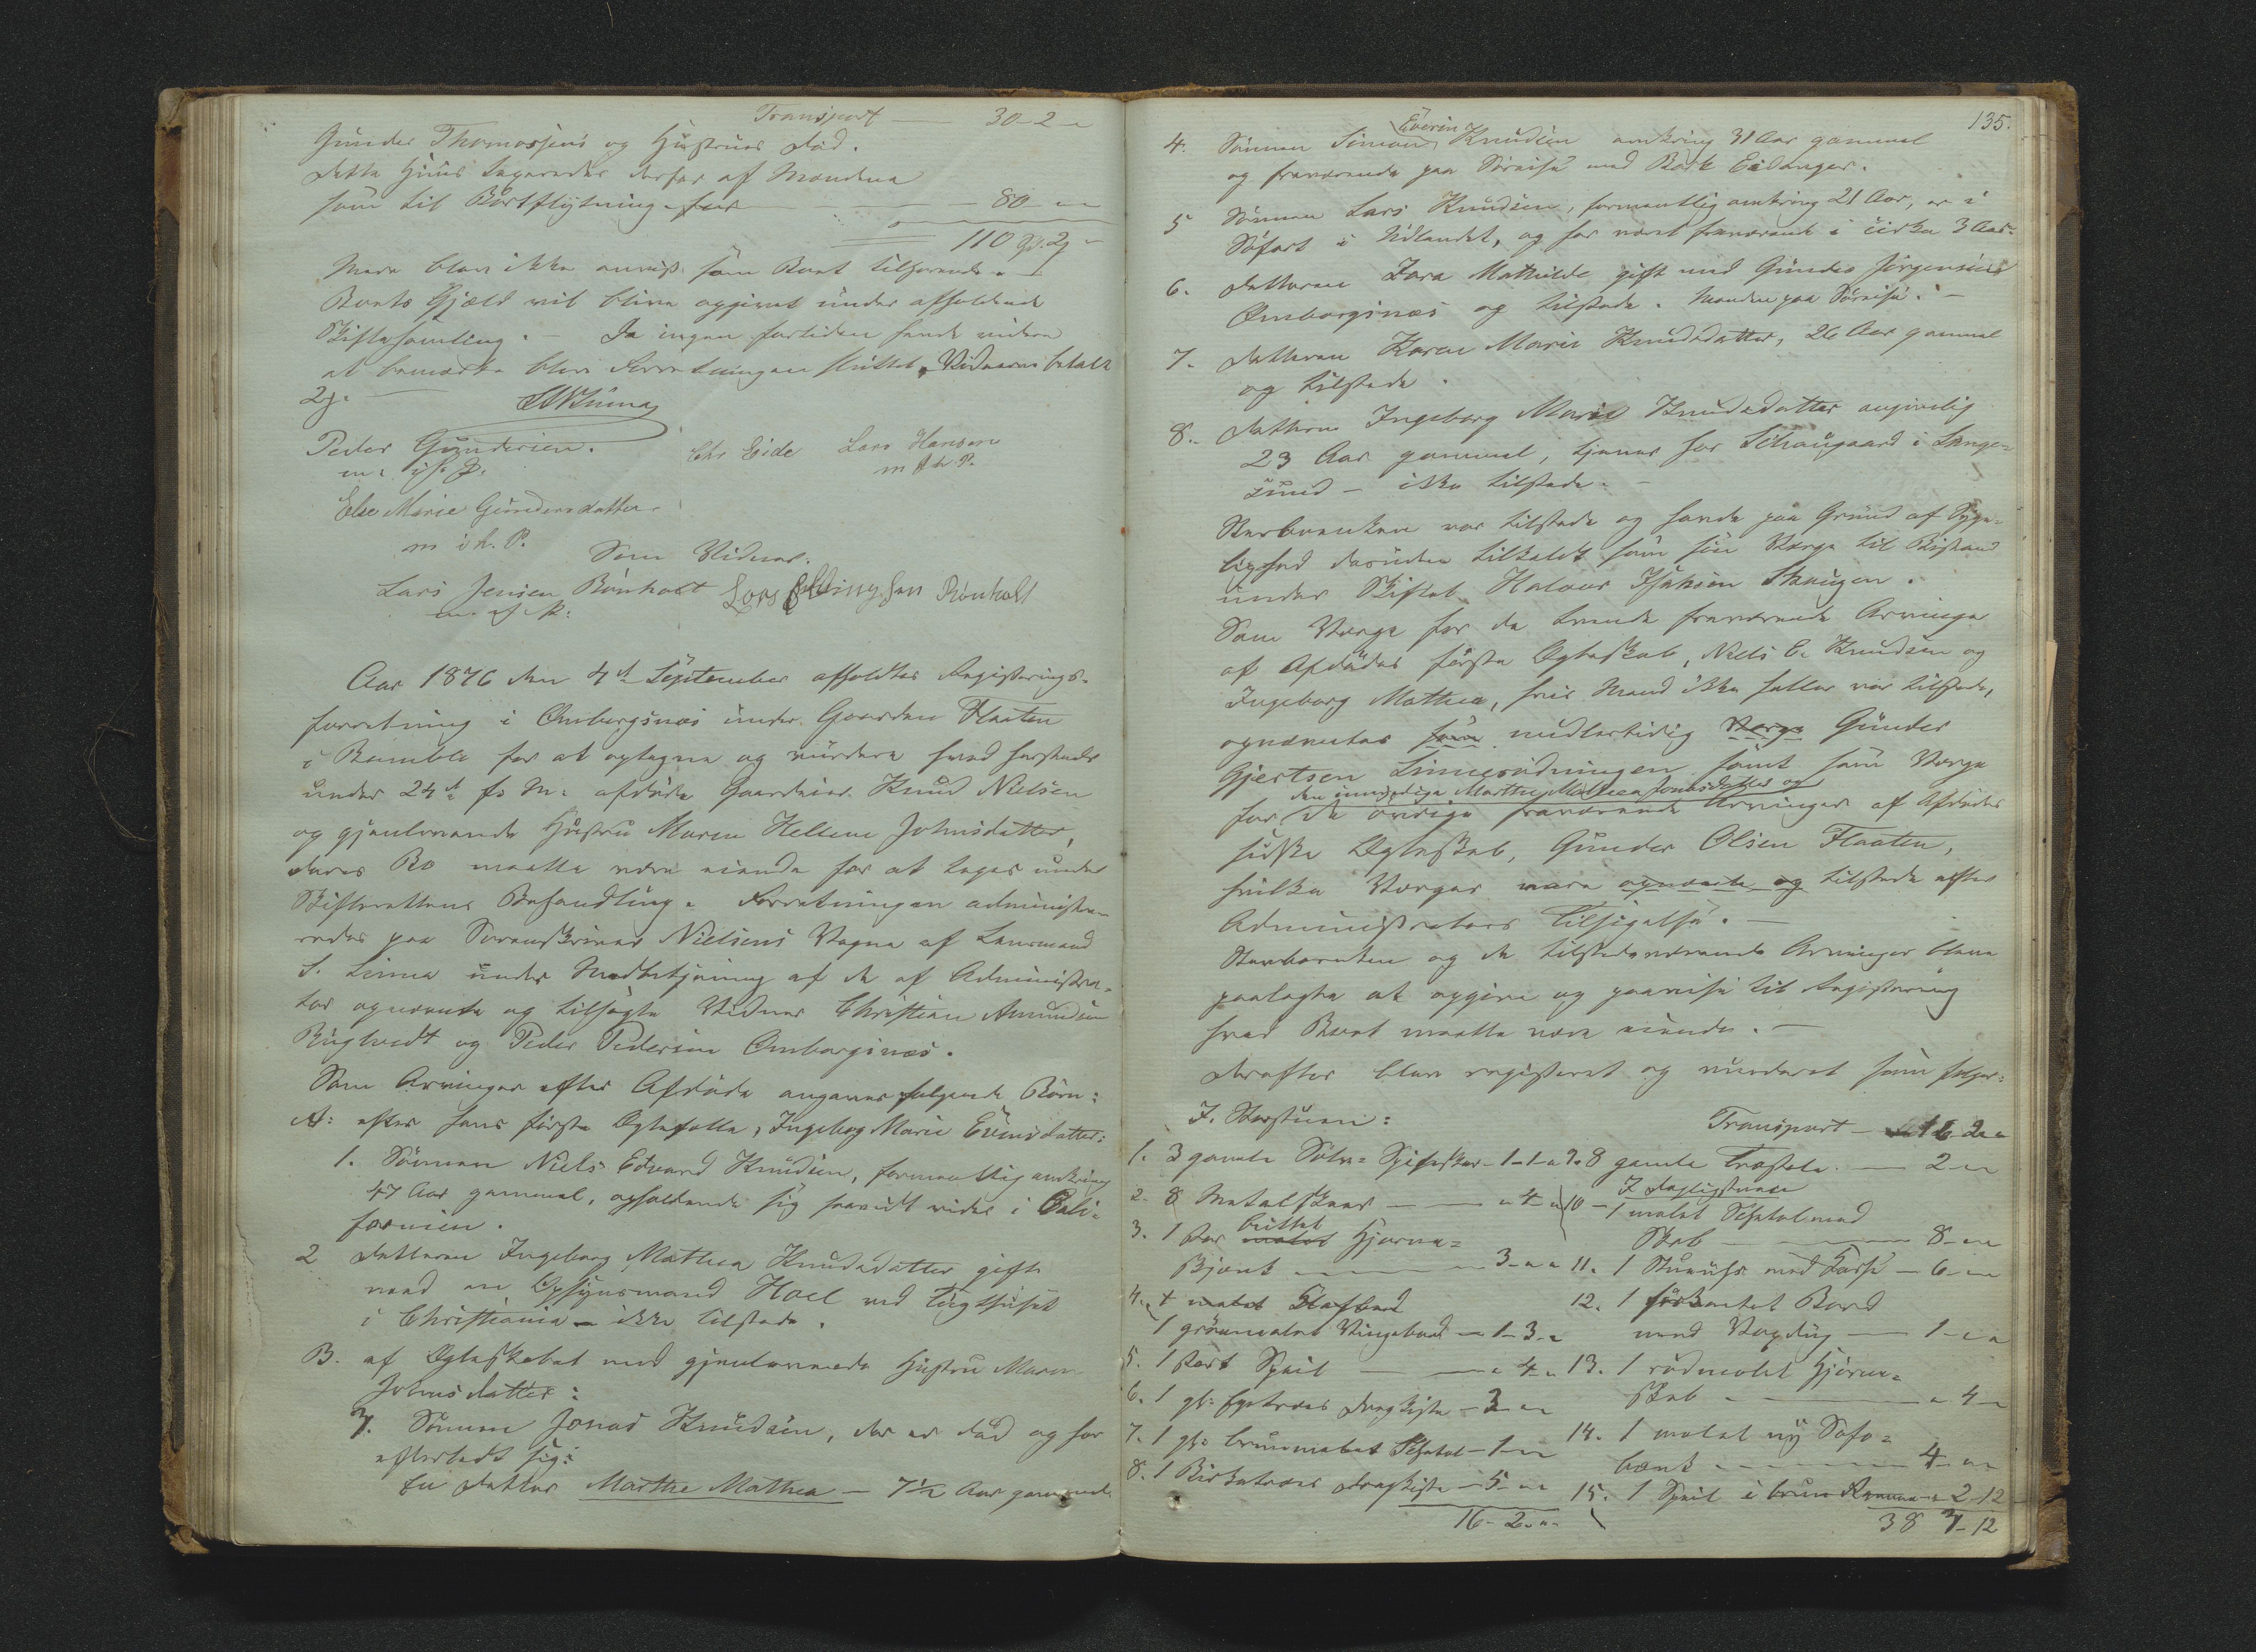 Transport — 30-2-"
Gunder Thomassens og Hustrues Død.
Dette Huus taxeredes derfor af Mændene
som til Bortflytning for — 80 - "
110 Spd. 2 " -
Mere blev ikke anvist som Boet tilhørende.
Boets Gjæld vil blive opgivet under afholdende
Skiftesamling. — Da ingen fortiden havde videre
at bemærke blev Forretningen sluttet. Vidnerne betalt
2
Peder Gundersen.
m. i h. P.
Chr Eide Lars Hansen
m i h. P.
Else Marie Gundersdatter
m i h. P.
Som Vidner.
Lars Jensen Rönholt Lars Ellingsen Rönholt
m. i h. P:
Aar 1876 den 4de September afholdtes Registrerings-
forretning i Omborgsnæs under Gaarden Flaaten
i Bamble for at optegne og vurdere hvad
under 24de f. M. afdöde Gaardeier Knud Nielsen
og gjenlevende Hustru Maren Hellene Johnsdatter,
deres Bo maatte være eiende for at tages under
Skifterettens Behandling. Forretningen administre-
redes paa Sorenskriver Nielsens Vegne af Lensmand
S. Linna under Medbetjening af de af Administra-
tor opnævnte og tilsagte Vidner Christian Amundsen
Rugtvedt og Peder Pedersen Ombergsnæs.
Som Arvinger efter Afdöde angaves følgende Börn:
A: efter hans förste Ægtefælle, Ingeborg Marie Evensdatter:
1. Sönnen Niels Edvard Knudsen, formentlig omkring
47 Aar gammel, opholdende sig saavidt vides i Cali-
fornien.
2 Datteren Ingeborg Mathea Knudsdatter gift
med en Opsynsmand Hoel ved Tugthuset
i Christiania - ikke tilstede.
B. af Ægteskabet med gjenlevende Hustru Maren
Johnsdatter:
3. Sönnen Jonas Knudsen, der er död og har
efterladt sig:
En Datter Marthe Mathea — 7½ Aar gammel.
135.
4. Sönnen Simon Everin Knudsen omkring 31 Aar gammel
og fraværende paa Söreise med Bark Eidanger.
5 Sönnen Lars Knudsen, formentlig omkring 21 Aar, er i
Söfart i Udlandet, og har været fraværende i cirka 3 Aar.
6. Datteren Zara Mathilde gift med Gunder Jörgensen
Ombergsnæs og tilstede. Manden paa Söreise. —
7. Datteren Karen Marie Knudsdatter, 26 Aar gammel
og tilstede.
8. Datteren Ingeborg Marie Knudsdatter angivelig
23 Aar gammel, tjener hos Schaugaard i Lange-
sund - ikke tilstede. -
Sterbenken var tilstede og havde paa Grund af Syge-
lighed desuden tilkaldt som sin Værge til Bistand
under Skiftet Halvor Isaksen Skaugen.
Som Værge for de tvende fraværende Arvinger
af Afdödes förste Ægteskab, Niels E. Knudsen og
Ingeborg Mathea, hvis Mand ikke heller var tilstede,
opnævntes som midlertidig Værge Gunder
Gjertsen Linnerödningen samt som Værge
den umyndige Marthe Mathea Jonasdatter og
for de övrige fraværende Arvinger af Afdödes
sidste Ægteskab, Gunder Olsen Flaaten,
hvilke Værger vare opnævnte og tilstede efter
Administrators Tilsigelse. —
Sterbenken og de tilstedeværende Arvinger bleve
paalagte at opgive og paavise til Registrering
hvad Boet maatte være eiende. —
Derefter blev registreret og vurderet som fölger:
I. Storstuen:
1. 3 gamle Sölv-Spiseskeer - 1-1-"
2. 8 Metalskeer — " 4 - "
3. 1 Par malet Hjörne-
Bjænk — 3 - "
4. 1 malet Slagbord
1 grönmalet Vingebord — 1-3-"
5. 1 stort Speil — " 4 - "
6. 1 gl: Dragkiste — 3 - "
7. 1 gl: brunmalet Chatol — 1 - "
8. 1 Birketræes Dragkiste — 5 - "
16-2-"
Transport — 16-2-"
9. 8 gamle Træstole — 2 - "
I Dagligstuen
10 - 1 malet Chatol med
Skab — 8 - "
11. 1 Stueuhr med Kasse — 6 - "
12. 1 Bord
med Voxdug — 1 - "
13. 1 rödmalet Hjörne-
skab — " 4 -
14. 1 malet ny Sofa-
bænk — 4 - "
15. 1 Speil i brun Ramme " 2-12
38 3-12